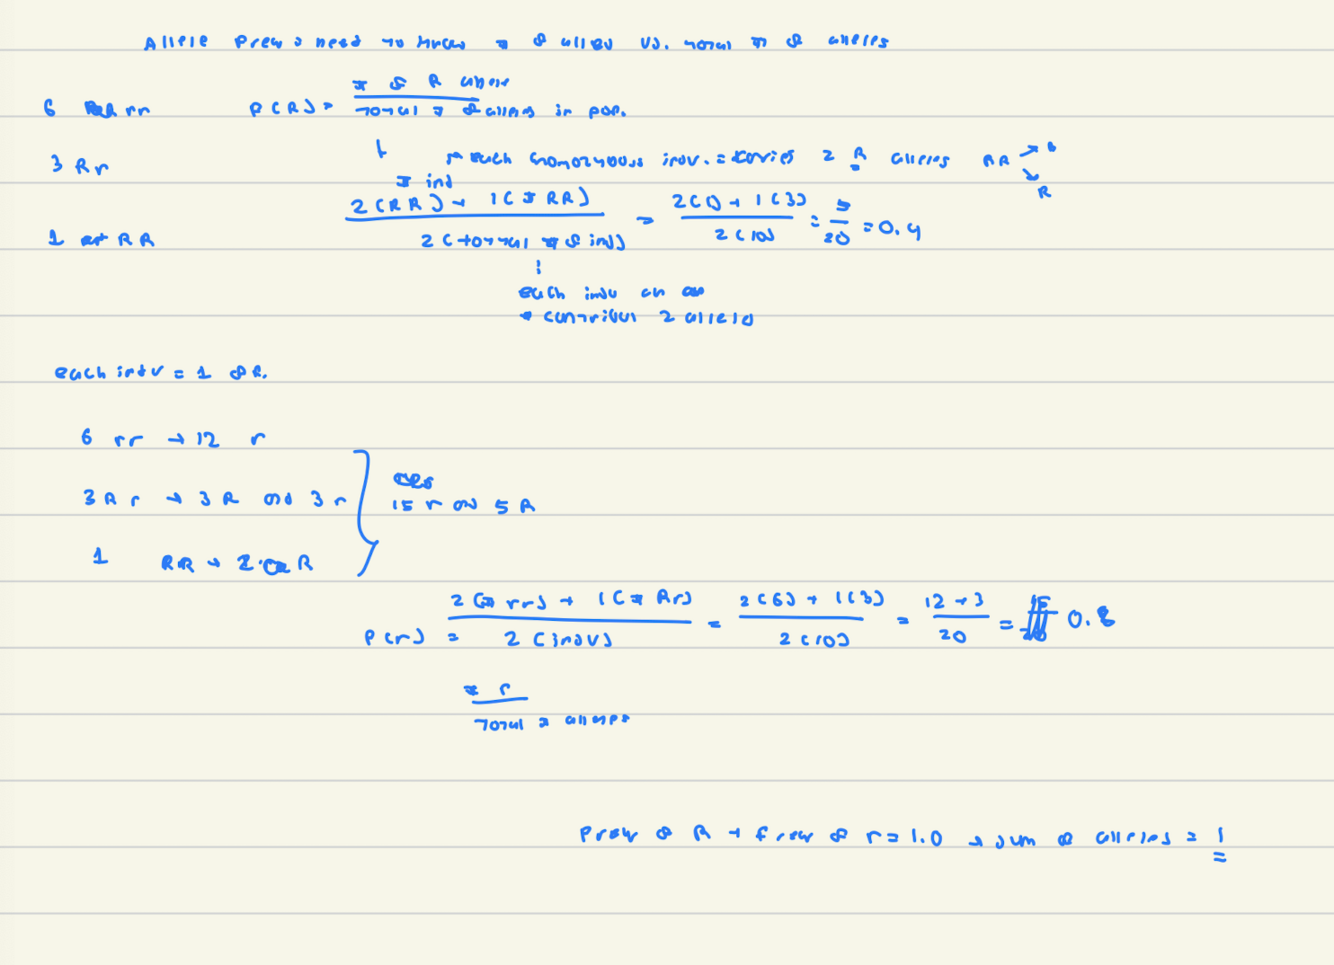 Allele freq → need to know # of alleles vs. total # of alleles
# of R allele
6 rr P(R) = total # of alleles in pop.
3 Rr
→ each homozygous indv. = carries 2 R alleles RR → R
→ R
# ind
2(RR) + 1(# RR) = 2(1) + 1(3) = 5 = 0.4
1 RR 2(total # of ind) 2(10) 20
each indv
contribut 2 alleles
each indv = 1 of R.
6 rr → 12 r
3 R r → 3 R and 3 r
15 r and 5 R
1 RR → 2 R
P(r) = 2(# rr) + 1(# Rr) = 2(6) + 1(3) = 12 + 3 = 0.8
2(indv) 2(10) 20
# r
Total # alleles
freq of R + freq of r = 1.0 → sum of alleles = 1